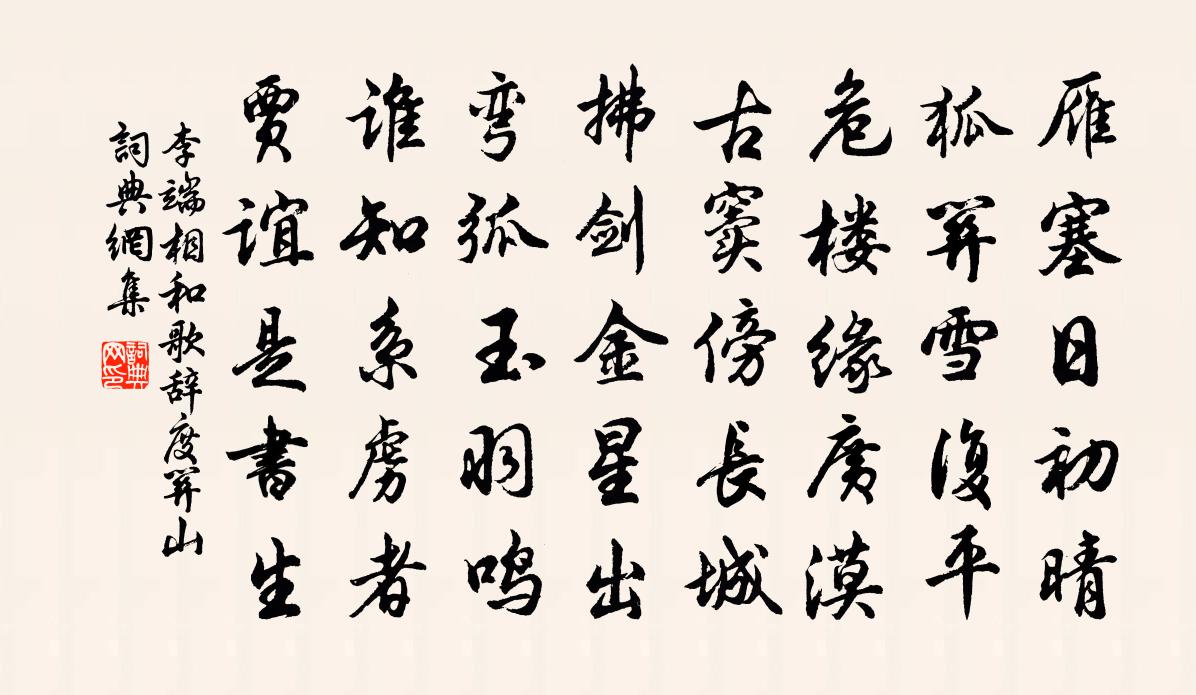 雁塞日初晴
狐關雪復平
危楼缘廣漠
古竇傍長城
拂剑金星出
弯弧玉羽鸣
谁知系虏者
贾谊是書生
李端相和歌辞度關山
詞典網集
詞典网印